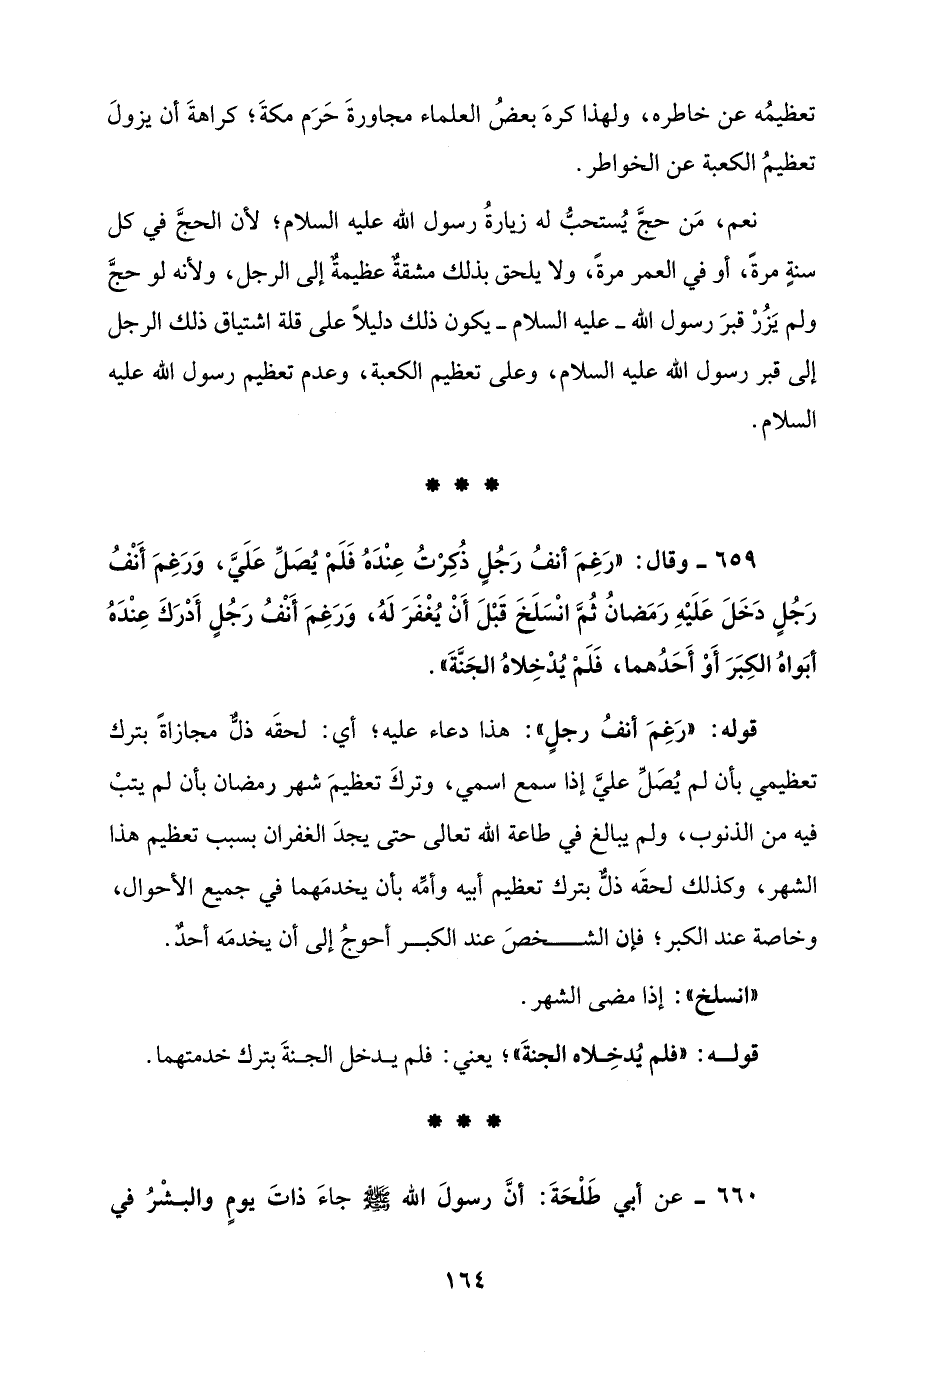 تعظيمُه عن خاطره، ولهذا كرهَ بعضُ العلماء مجاورةَ حَرَم مكةَ؛ كراهةَ أن يزولَ
تعظيمُ الكعبة عن الخواطر.
نعم، مَن حجَّ يُستحبُّ له زيارةُ رسول الله عليه السلام؛ لأن الحجَّ في كل
سنةٍ مرةً، أو في العمر مرةً، ولا يلحق بذلك مشقةٌ عظيمةٌ إلى الرجل، ولأنه لو حجَّ
ولم يَزُرْ قبرَ رسول الله ـ عليه السلام ـ يكون ذلك دليلاً على قلة اشتياق ذلك الرجل
إلى قبر رسول الله عليه السلام، وعلى تعظيم الكعبة، وعدم تعظيم رسول الله عليه
السلام.
* * *
٦٥٩ ـ وقال: «رَغِمَ أنفُ رَجُلٍ ذُكِرْتُ عِنْدَهُ فَلَمْ يُصَلِّ عَلَيَّ، وَرَغِمَ أَنْفُ
رَجُلٍ دَخَلَ عَلَيْهِ رَمَضانُ ثُمَّ انْسَلَخَ قَبْلَ أَنْ يُغْفَرَ لَهُ، وَرَغِمَ أَنْفُ رَجُلٍ أَدْرَكَ عِنْدَهُ
أَبَواهُ الكِبَرَ أَوْ أَحَدُهما، فَلَمْ يُدْخِلاهُ الجَنَّةَ».
قوله: «رَغِمَ أنفُ رجلٍ»: هذا دعاء عليه؛ أي: لحقَه ذلٌّ مجازاةً بترك
تعظيمي بأن لم يُصَلِّ عليَّ إذا سمع اسمي، وتركَ تعظيمَ شهر رمضان بأن لم يتبْ
فيه من الذنوب، ولم يبالغ في طاعة الله تعالى حتى يجدَ الغفران بسبب تعظيم هذا
الشهر، وكذلك لحقَه ذلٌّ بترك تعظيم أبيه وأمِّه بأن يخدمَهما في جميع الأحوال،
وخاصة عند الكبر؛ فإن الشخصَ عند الكبر أحوجُ إلى أن يخدمَه أحدٌ.
«انسلخ»: إذا مضى الشهر.
قوله: «فلم يُدخِلاه الجنةَ»؛ يعني: فلم يدخل الجنةَ بترك خدمتهما.
* * *
٦٦٠ ـ عن أبي طَلْحَةَ: أنَّ رسولَ الله ﷺ جاءَ ذاتَ يومٍ والبشْرُ في
١٦٤